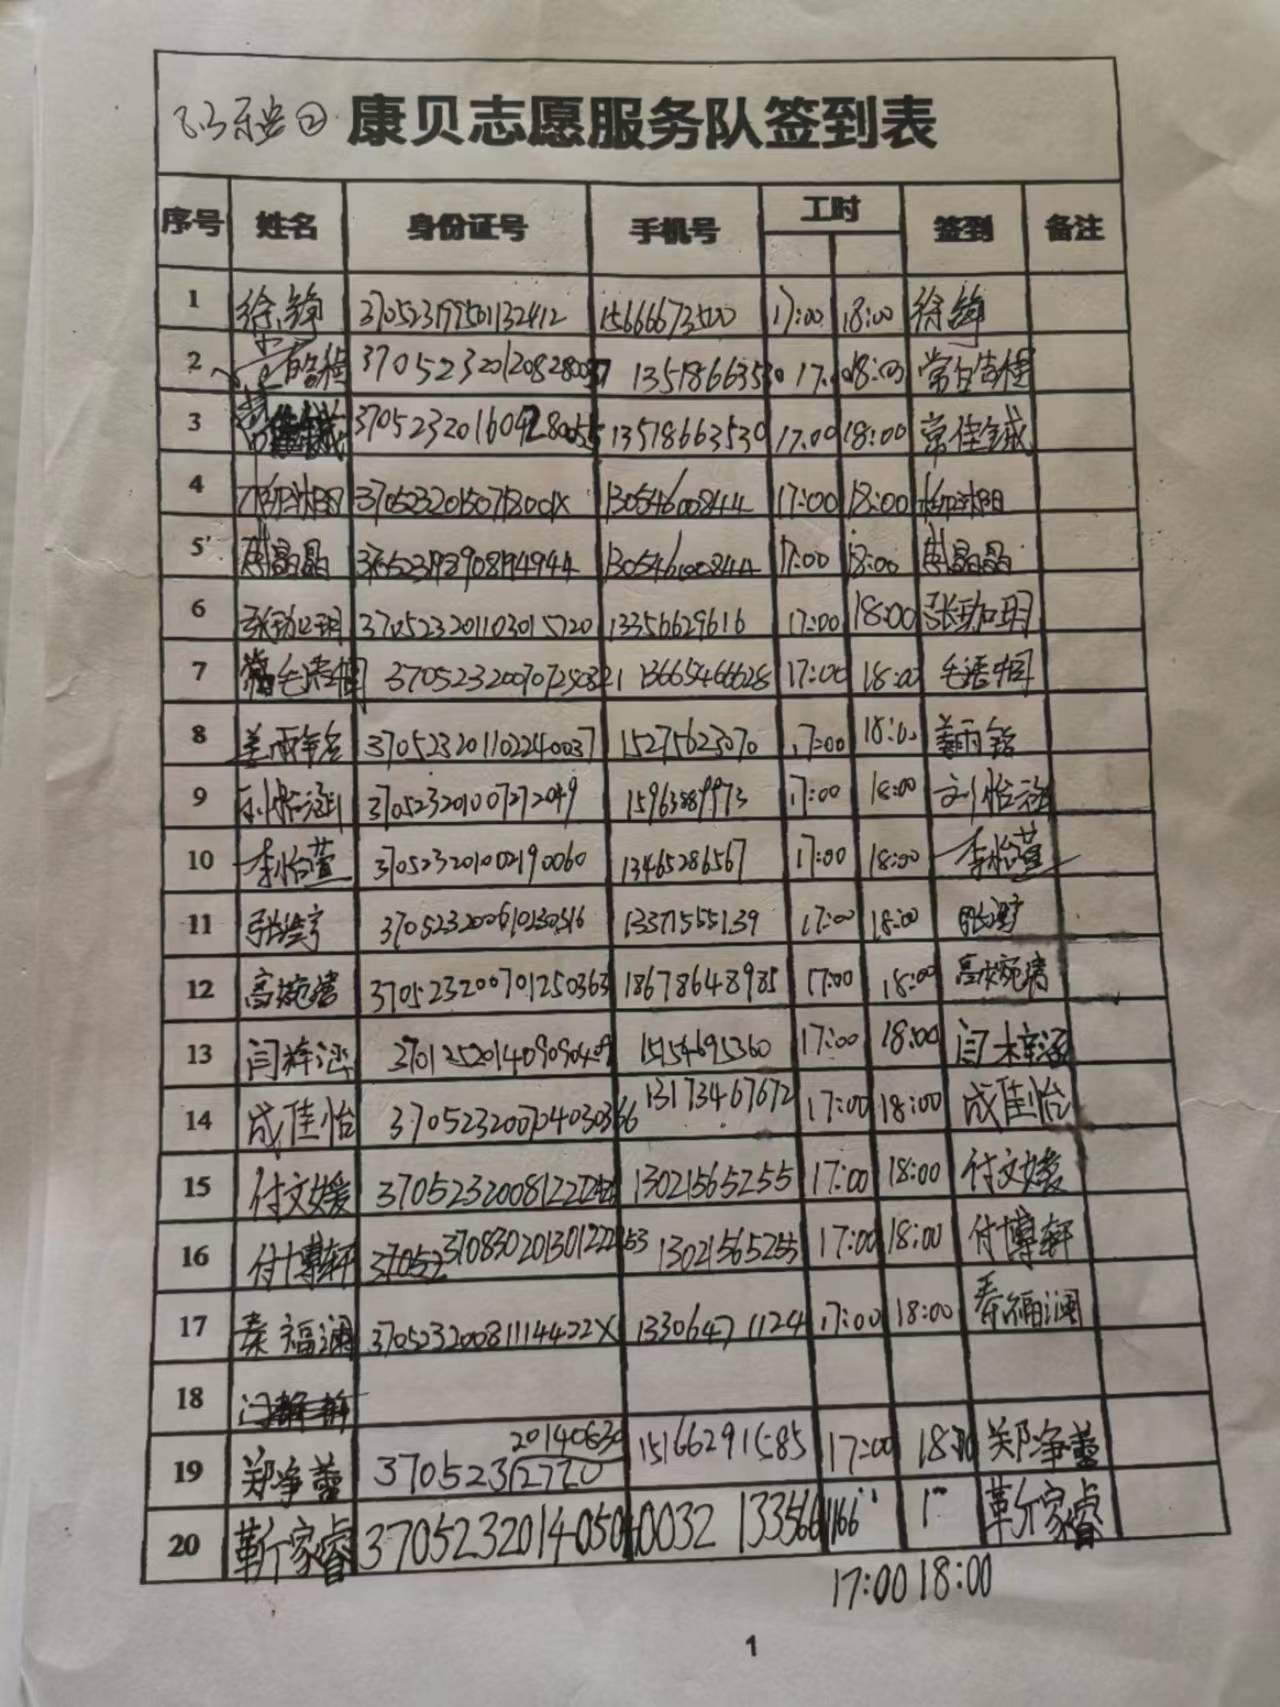 康贝志愿服务队签到表
序号 姓名 身份证号 手机号 工时 签到 备注
1 徐 370523199501132412 15666673500 17:00 18:00 徐
2 皓程 13518663530 17:00 18:00 常皓程
3 常佳铖 13518663530 17:00 18:00 常佳铖
4 阳 37052320150718001X 13054600844 17:00 18:00 阳
5 晶晶 13054600844 17:00 18:00 晶晶
6 张珈玥 370523201103015720 13356629616 17:00 18:00 张珈玥
7 毛语桐 370523200707250321 13665466628 17:00 18:00 毛语桐
8 姜雨铭 370523201102240037 15275623070 17:00 18:00 姜雨铭
9 刘怡涵 370523201007272049 15963889973 17:00 18:00 刘怡涵
10 李怡萱 370523201002190060 13465286567 17:00 18:00 李怡萱
11 张 13371555139 17:00 18:00 张
12 高婉清 370523200701250363 18678648985 17:00 18:00 高婉清
13 闫梓涵 15154695360 17:00 18:00 闫梓涵
14 成佳怡 370523200704030366 13173467672 17:00 18:00 成佳怡
15 付文媛 13021565255 17:00 18:00 付文媛
16 付博轩 13021565255 17:00 18:00 付博轩
17 秦福澜 37052320081114422X 13306471124 17:00 18:00 秦福澜
18
20140630
19 郑净蕾 370523 2720 15166291585 17:00 18:00 郑净蕾
20 靳家睿 370523201405010032 靳家睿
17:00 18:00
1